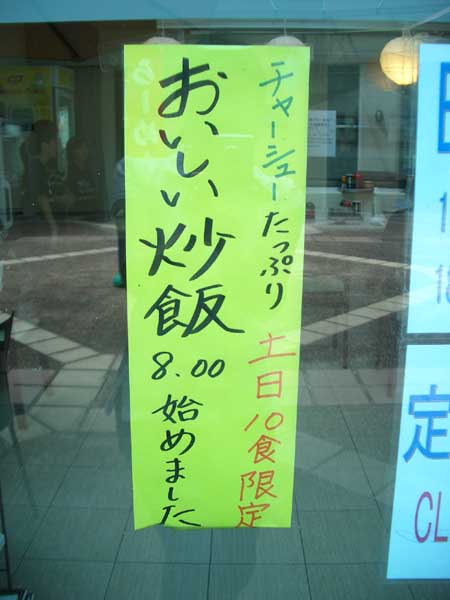 チャーシューたっぷり
土日10食限定
おいしい炒飯
8.00
始めました
定
CL